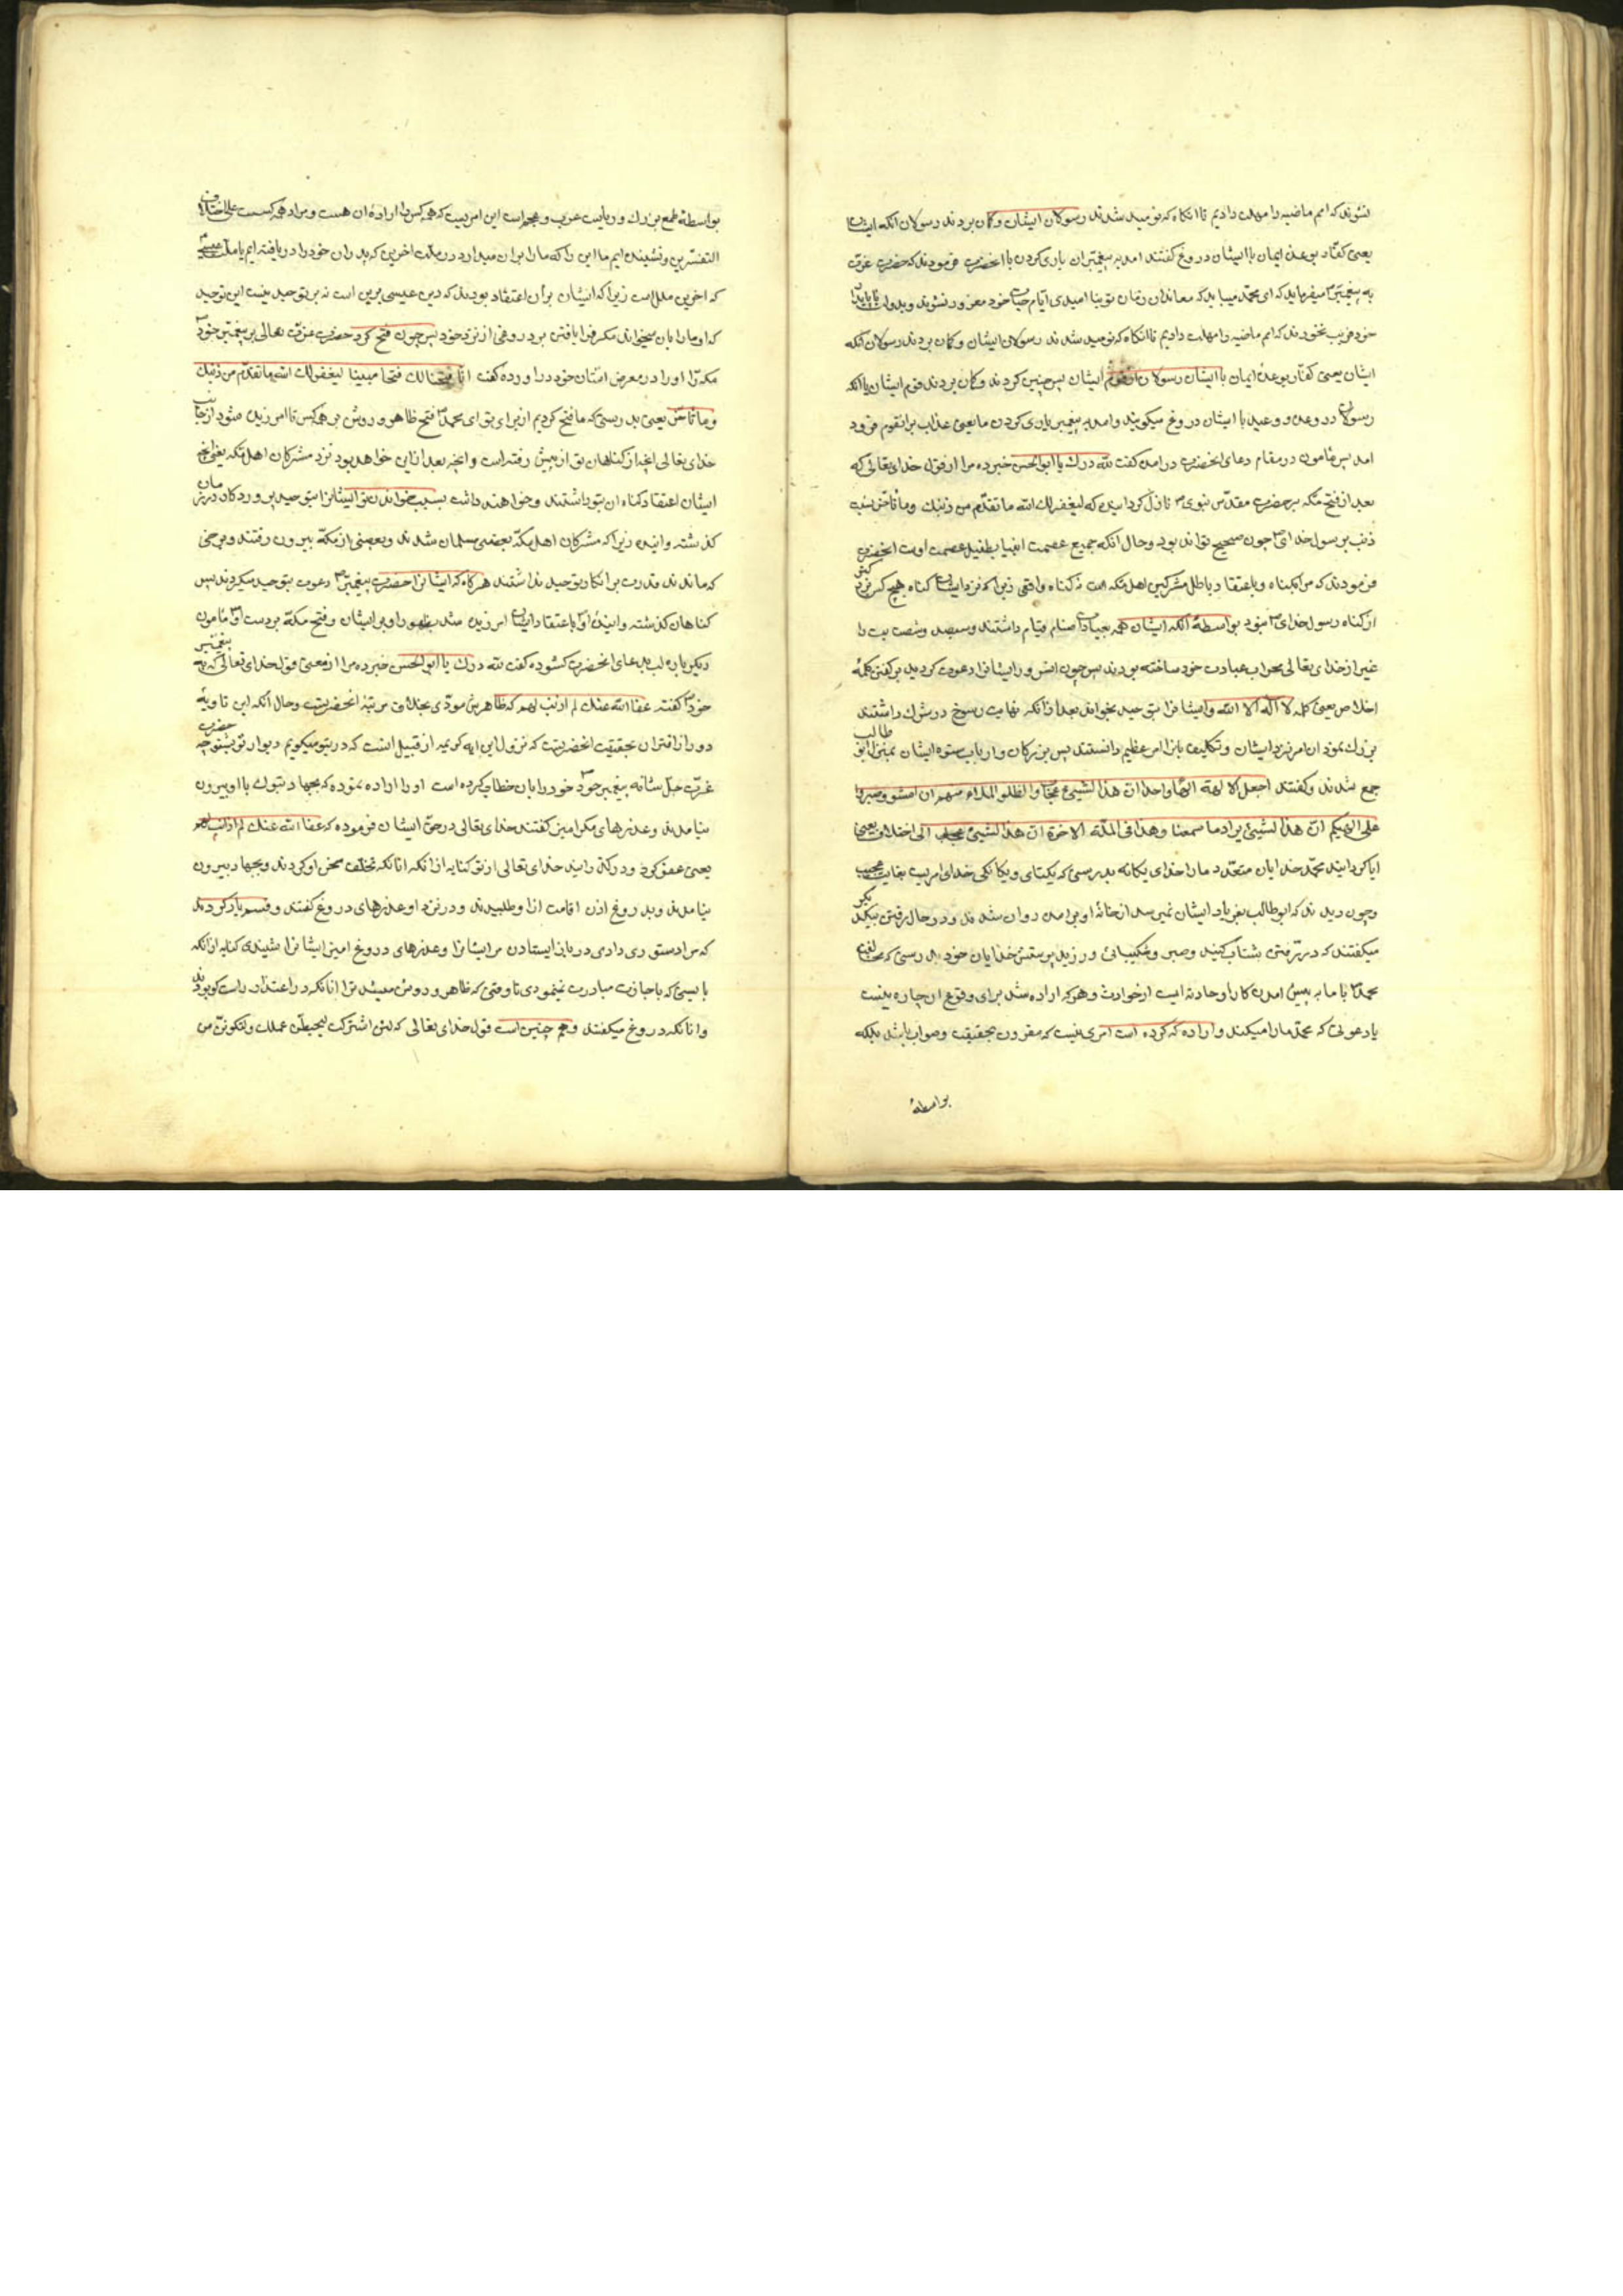 نشوند که امم ماضیه را مهلت دادیم تا انکاه که نومید شدند رسولان ایشان و کمان بردند رسولان انکه ایشان
یعنی کفار بوعدهٔ ایمان با ایشان دروغ کفتند امد به پیغمبران یاری کردن با انحضرت فرمودند که حضرت عزت
به پیغمبر میفرماید که ای محمد میباید که معاندان زمان تو بنا امیدی ایام حیات خود مغرور نشوند و بدولت ناپایدار
خود فریب نخورند که امم ماضیه را مهلت دادیم تا انکاه که نومید شدند رسولان ایشان و کمان بردند رسولان انکه
ایشان یعنی کفار بوعدهٔ ایمان با ایشان رسولان از قوم ایشان پس چنین کردند و کمان بردند قوم ایشان با انکه
رسولان در وعده و وعید با ایشان دروغ میکویند و امد به پیغمبر یاری کردن ما یعنی عذاب بر انقوم فرود
امد پس مامون در مقام دعای انحضرت در امده کفت لله درک یا ابوالحسن خبر ده مرا از قول خدای تعالی که
بعد از فتح مکه بر حضرت مقدس نبوی نازل کردانیده که لیغفر لک الله ما تقدم من ذنبک وما تاخر نسبت
ذنب برسول خدای چون صحیح تواند بود و حال انکه جمیع عصمت انبیا بطفیل عصمت اوست انحضرت
فرمودند که مراد کناه و باعتقاد باطل مشرکین اهل مکه است نه کناه واقعی زیرا که نزد ایشان کناه هیچ کس بزرکتر
از کناه رسول خدای نبود بواسطهٔ انکه ایشان همه بعبادت اصنام قیام داشتند و سیصد و شصت بت را
غیر از خدای تعالی محراب عبادت خود ساخته بودند پس چون انسرور ایشانرا دعوت کردید بر کفتن کلمهٔ
اخلاص یعنی کلمه لا اله الا الله و ایشانرا بتوحید بخواند بعد از انکه نهایت رسوخ در شرک داشتند
بزرک نمود ان امر نزد ایشان و تکلیف بانرا امر عظیم دانستند پس بزرکان و ارباب ستوه ایشان بمنزل ابو طالب
جمع شدند و کفتند اجعل الالهة الها واحدا ان هذا لشیئ عجاب وانطلق الملاء منهم ان امشوا واصبروا
علی الهتکم ان هذا لشیئ یراد ما سمعنا بهذا فی الملة الاخرة ان هذا لشیئ عجاب الی اختلاق یعنی
ایا کردانید محمد خدایان متعدد ما را خدای یکانه بدرستی که یکتای و یکانکی خدای امریست بغایت عجیب
و چون دیدند که ابوطالب بفریاد ایشان نمیرسد از خانهٔ او بر امده روان شدند و در حال رفتن بیکدیکر
میکفتند که در رفتن شتاب کنید و صبر و شکیبائی ورزید بر پرستش خدایان خود بدرستی که مخالفت
محمد با ما به پیش امدن کار و حادثه ایست از حوادث و هر که اراده شد برای وقوع ان چاره نیست
یا دعوتی که محمد ما را میکند و اراده که کرده است امری نیست که مقرون بحقیقت و صواب باشد بلکه
بواسطهٔ
بواسطهٔ طمع بزرک و ریاست عرب و عجم است این امریست که همه کس را ارادهٔ ان هست و مراد همه کسست علی اختلاف
التفسرین و نشنیده ایم ما این را که ما را بران میدارد در ملت اخرین که پدران خود را دریافته ایم یا ملت عیسی
که اخرین ملل است زیرا که ایشان بران اعتقاد بودند که دین عیسی برین است نه بر توحید نیست این توحید
که او ما را بان میخواند مکر فرا بافتن بر دروغی از نزد خود پس چون فتح کرد حضرت عزت تعالی بر پیغمبر خود
مکه را او را در معرض امتنان خود در اورده کفت انا فتحنا لک فتحا مبینا لیغفر لک الله ما تقدم من ذنبک
وما تاخر یعنی بدرستی که ما فتح کردیم از برای تو ای محمد فتح ظاهر و روشن بر همه کس تا امرزیده شود از جانب
خدای تعالی انچه از کناهان تو از پیش رفته است و انچه بعد ازاین خواهد بود نزد مشرکان اهل مکه یعنی انچه
ایشان اعتقاد کناه ان بتو داشتند و خواهند داشت بسبب خواندن تو ایشانرا بتوحید پروردکار در زمان
کذشته و اینده زیرا که مشرکان اهل مکه بعضی مسلمان شدند و بعضی از مکه بیرون رفتند و برخی
که ماندند قدرت بر انکار توحید نداشتند هرکاه که ایشانرا حضرت پیغمبر دعوت بتوحید میکردند پس
کناهان کذشته و ایندهٔ او باعتقاد ایشان امرزیده شد بظهور او بر ایشان و فتح مکه بردست او مامون
دیکر باره لب بدعای انحضرت کشوده کفت لله درک یا ابوالحسن خبر ده مرا از معنی قول خدای تعالی که به پیغمبر
خود کفته عفا الله عنک لم اذنت لهم که ظاهرش مودی بخلاف مرتبهٔ انحضرتست و حال انکه این تاویه
دور از اقتران بحقیقت انحضرتست که نزول این ایه کریمه از قبیل انست که در بتو میکویم دیوار تو بشنو چه حضرت
عزت جل شانه پیغمبر خود را بان خطاب کرده است او را اراده نموده که بجهاد تبوک با او بیرون
نیامدند و عذرهای مکر امیز کفتند خدای تعالی در حق ایشان فرموده که عفا الله عنک لم اذنت لهم
یعنی عفو کرد و درکذرانید خدای تعالی از تو کنایه از انکه انانکه تخلف سخن او کردند و بجهاد بیرون
نیامدند و بدروغ اذن اقامت از او طلبیدند و در نزد او عذرهای دروغ کفتند و قسم یاد کردند
که مرا دستوری دادی در باز ایستادن مر ایشانرا و عذرهای دروغ امیز ایشانرا شنیدی کنایه از انکه
بایستی که باجازت مبادرت نمینمودی تا وقتی که ظاهر و روشن میشد ترا انانکه در اعتذار راست کو بودند
و انانکه دروغ میکفتند و هم چنین است قول خدای تعالی که لئن اشرکت لیحبطن عملک ولتکونن من